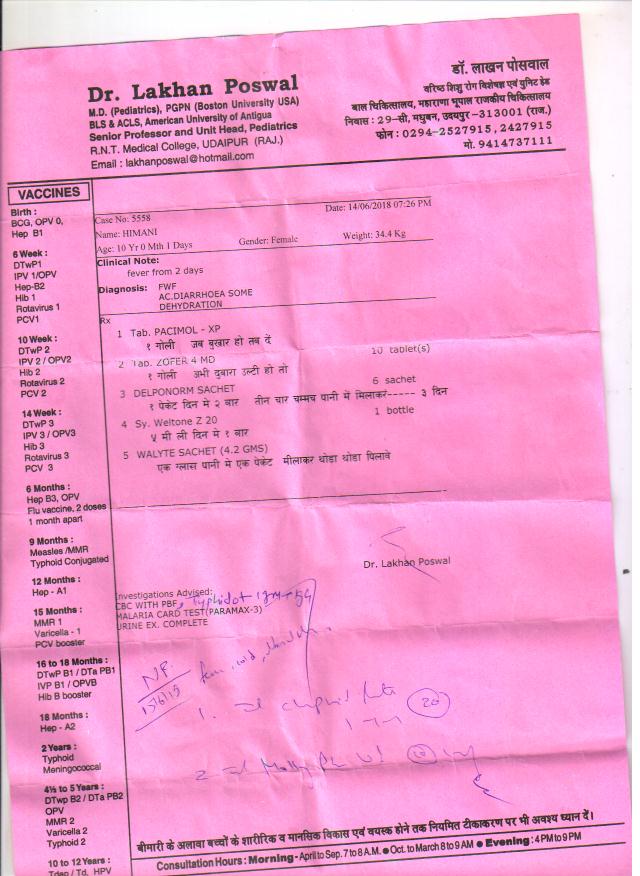 Dr. Lakhan Poswal
M.D. (Pediatrics), PGPN (Boston University USA)
BLS & ACLS, American University of Antigua
Senior Professor and Unit Head, Pediatrics
R.N.T. Medical College, UDAIPUR (RAJ.)
Email : lakhanposwal@hotmail.com
डॉ. लाखन पोसवाल
वरिष्ठ शिशु रोग विशेषज्ञ एवं युनिट हेड
बाल चिकित्सालय, महाराणा भूपाल राजकीय चिकित्सालय
निवास : 29-सी, मधुबन, उदयपुर-313001 (राज.)
फोन : 0294-2527915, 2427915
मो. 9414737111
VACCINES
Birth :
BCG, OPV 0,
Hep B1
6 Week :
DTwP1
IPV 1/OPV
Hep-B2
Hib 1
Rotavirus 1
PCV1
10 Week :
DTwP 2
IPV 2 / OPV2
Hib 2
Rotavirus 2
PCV 2
14 Week :
DTwP 3
IPV 3 / OPV3
Hib 3
Rotavirus 3
PCV 3
6 Months :
Hep B3, OPV
Flu vaccine, 2 doses
1 month apart
9 Months :
Measles /MMR
Typhoid Conjugated
12 Months :
Hep - A1
15 Months :
MMR 1
Varicella - 1
PCV booster
16 to 18 Months :
DTwP B1 / DTa PB1
IVP B1 / OPVB
Hib B booster
18 Months :
Hep - A2
2 Years :
Typhoid
Meningococcal
4½ to 5 Years :
DTwp B2 / DTa PB2
OPV
MMR 2
Varicella 2
Typhoid 2
10 to 12 Years :
Tdap / Td, HPV
Case No: 5558 Date: 14/06/2018 07:26 PM
Name: HIMANI
Age: 10 Yr 0 Mth 1 Days Gender: Female Weight: 34.4 Kg
Clinical Note:
fever from 2 days
Diagnosis: FWF
AC.DIARRHOEA SOME
DEHYDRATION
Rx
1 Tab. PACIMOL - XP
१ गोली जब बुखार हो तब दें 10 tablet(s)
2 Tab. ZOFER 4 MD
१ गोली अभी दुबारा उल्टी हो तो
3 DELPONORM SACHET 6 sachet
१ पेकेट दिन मे २ बार तीन चार चम्मच पानी में मिलाकर----- ३ दिन
4 Sy. Weltone Z 20 1 bottle
५ मी ली दिन मे १ बार
5 WALYTE SACHET (4.2 GMS)
एक ग्लास पानी मे एक पेकेट मीलाकर थोडा थोडा पिलावे
Dr. Lakhan Poswal
Investigations Advised:
CBC WITH PBF, Typhidot
MALARIA CARD TEST(PARAMAX-3)
URINE EX. COMPLETE
1.
20
2
10
बीमारी के अलावा बच्चों के शारीरिक व मानसिक विकास एवं वयस्क होने तक नियमित टीकाकरण पर भी अवश्य ध्यान दें।
Consultation Hours : Morning - April to Sep. 7 to 8 A.M. ● Oct. to March 8 to 9 AM ● Evening : 4 PM to 9 PM